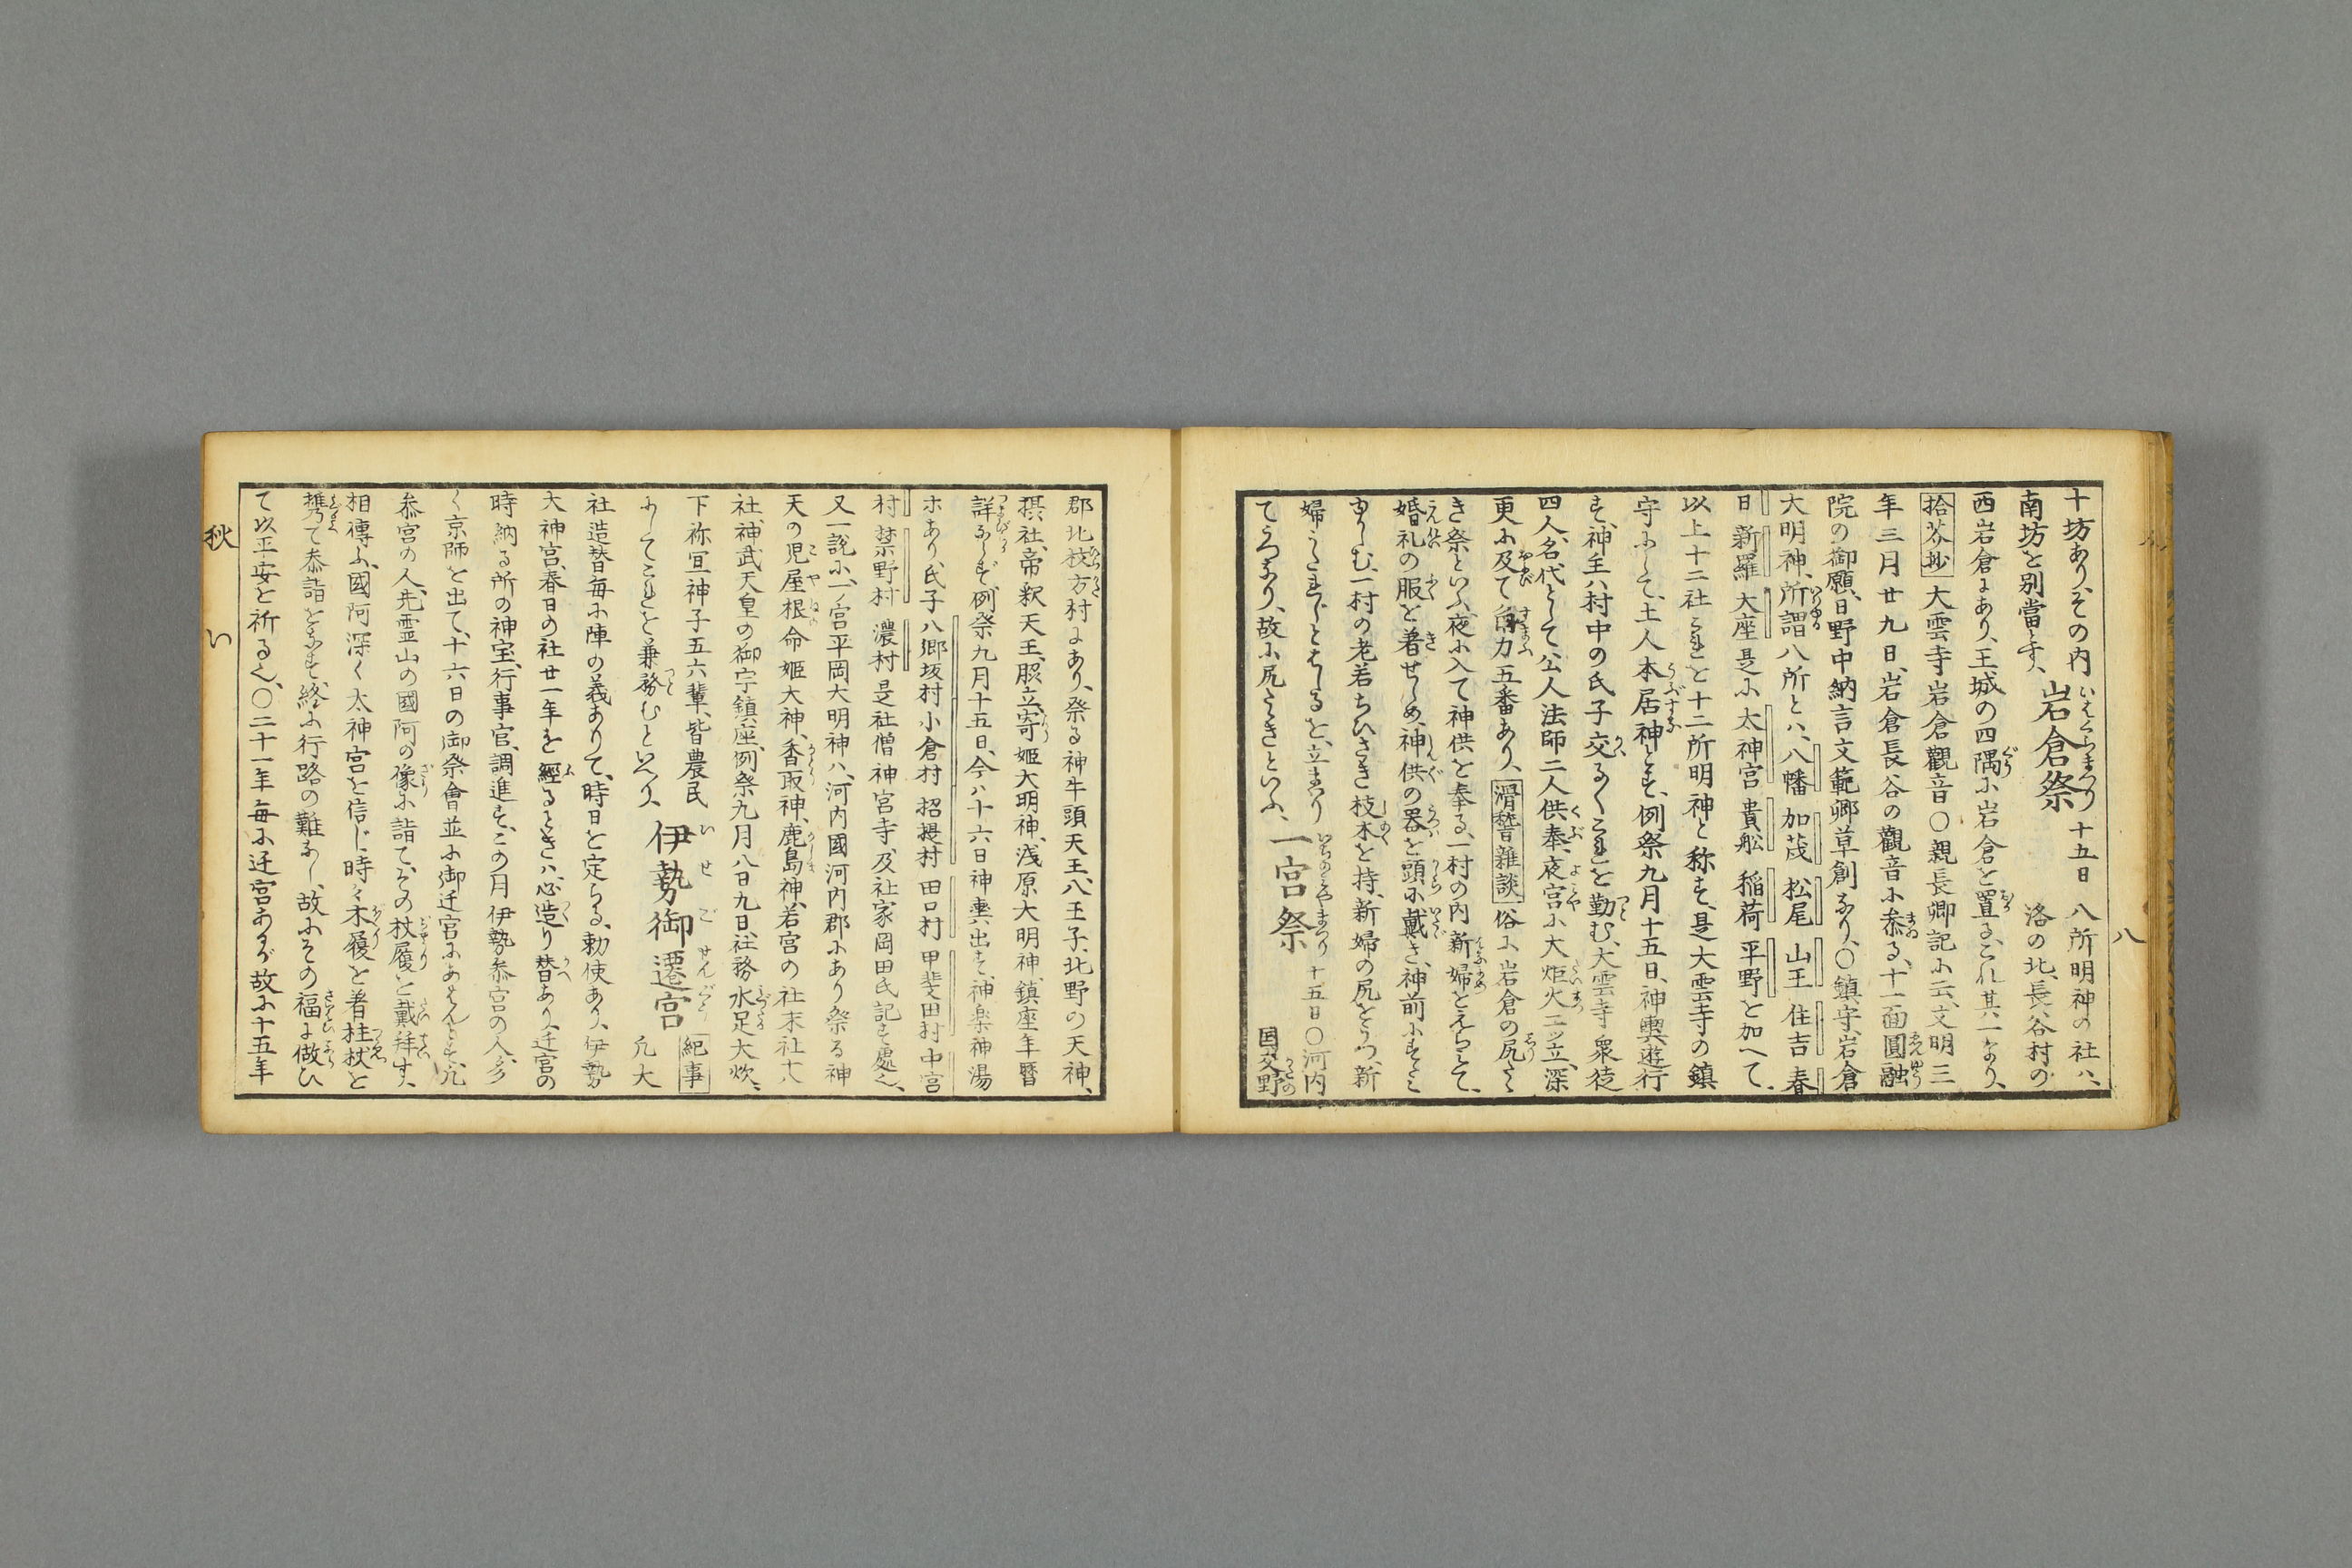 八
十坊あり、その内 岩倉祭 いはくらまつり 十五日 八所明神の社ハ、
南坊を別當とす、洛の北、長谷村の
西岩倉にあり、王城の四隅に岩倉を置る、これ其一なり、
拾芥抄 大雲寺岩倉觀音〇親長卿記に云、文明三
年三月廿九日、岩倉長谷の觀音に参る、十一面圓融
院の御願、日野中納言文範卿草創なり、〇鎮守、岩倉
大明神、所謂八所とハ、八幡 加茂 松尾 山王 住吉 春
日 新羅 大座是に 太神宮 貴舩 稲荷 平野を加へて、
以上十二社これを十二所明神と称す、是大雲寺の鎮
守にして、土人本居神とす、例祭九月十五日、神輿遊行
す、神主ハ村中の氏子交るくこれを勤む、大雲寺衆徒
四人、名代として公人法師二人供奉、夜宮に大炬火二ツ立、深
更に及て角力五番あり、滑稽雜談 俗に岩倉の尻たゝ
き祭といふ、夜に入て神供を奉る、一村の内新婦をえらみて、
婚礼の服を着せしめ、神供の器を頭に戴き、神前にすゝ
ましむ、一村の老若ちひさき枝木を持、新婦の尻をうつ、新
婦うたれじとはしるを、立まはり
てうつなり、故に尻たゝきといふ、 一宮祭 いちのみやまつり 十五日〇河内
国交野
郡北枚方村にあり、祭る神牛頭天王、八王子、北野の天神、
摂社、帝釈天王、豚立、寄姫大明神、浅原大明神、鎮座年暦
詳ならず、例祭九月十五日、今ハ十六日神輿出す、神楽神湯
ホあり、氏子八郷坂村 小倉村 招提村 田口村 甲斐田村 中宮
村 禁野村 濃村 是社僧神宮寺、及社家岡田氏記す處也、
又一説に、一ノ宮平岡大明神ハ、河内國河内郡にあり祭る神
天の児屋根命姫大神、香取神、鹿島神、若宮の社末社十八
社、神武天皇の御宇鎮座、例祭九月八日九日、社務水足大炊、
下祢宜神子五六輩、皆農民
にしてこれを兼務むといへり、 伊勢御遷宮 いせごせんぐう 紀事 凡大
社造替毎に陣の義ありて、時日を定らる、勅使あり、伊勢
大神宮、春日の社廿一年を經るときハ、必造り替あり、迁宮の
時納る所の神宝、行事官、調進す、この月伊勢参宮の人、多
く京師を出て、十六日の御祭會並に御迁宮にあはんとす、凡
参宮の人、先霊山の國阿の像に詣て、その杖履を戴拜す、
相傳ふ、國阿深く太神宮を信じ、時々木履を着、柱杖を
携て恭詣をなす、終に行路の難なし、故にその福に倣ひ
て以平安を祈る也、〇二十一年毎に迁宮あるが故に十五年
秋 い